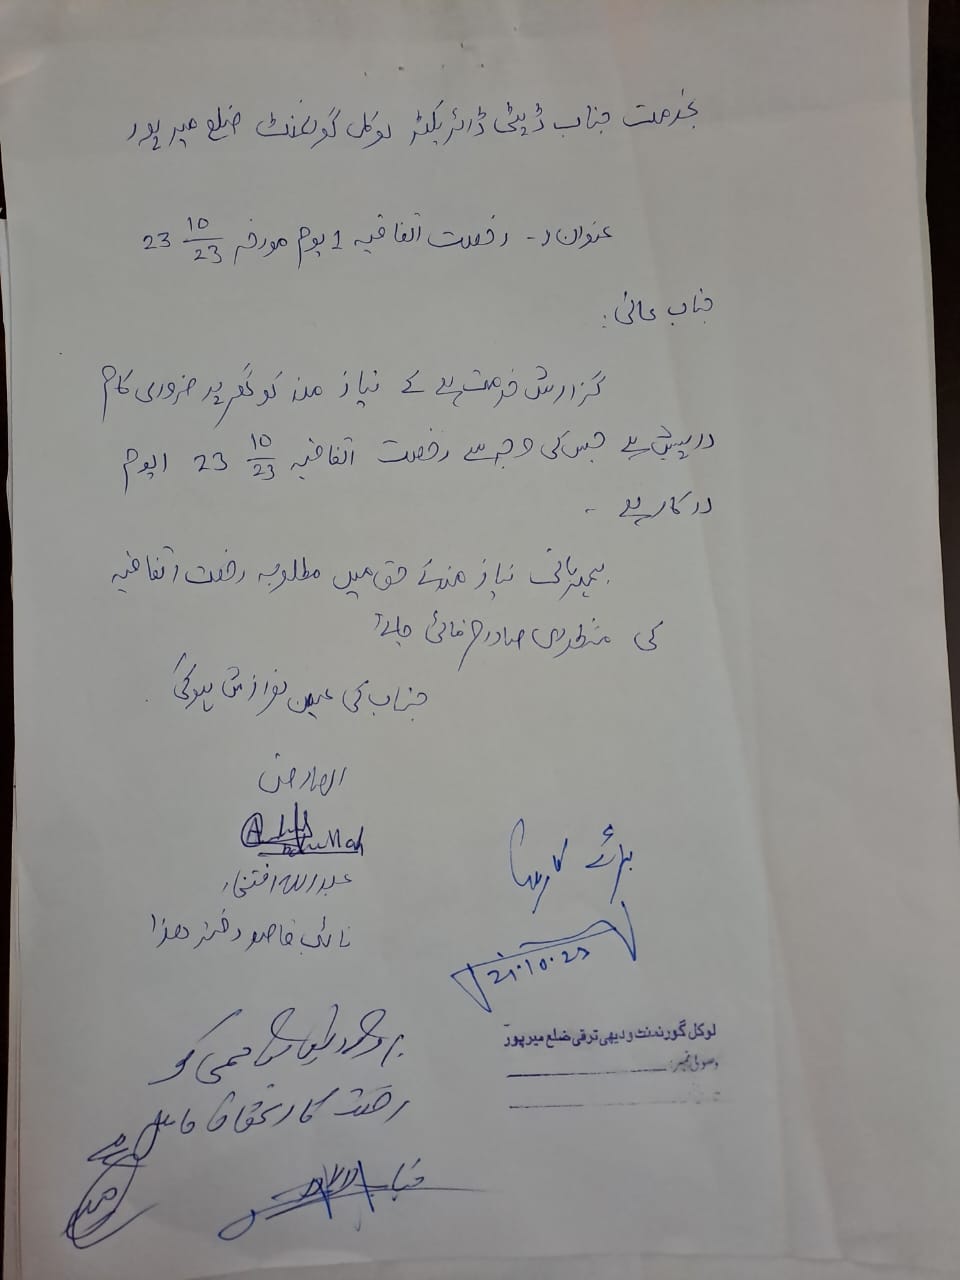 بخدمت جناب ڈپٹی ڈائریکٹر لوکل گورنمنٹ ضلع میرپور
عنوان :- رخصت اتفاقیہ 1 یوم مورخہ 23 10/23
جناب عالی :
گزارش خدمت ہے کے نیاز مند کو گھر پر ضروری کام
درپیش ہے جس کی وجہ سے رخصت اتفاقیہ 23 10/23 1 یوم
درکار ہے -
بمہربانی نیاز مند کے حق میں مطلوبہ رخصت اتفاقیہ
کی منظوری صادر فرمائی جائے
جناب کی عین نوازش ہو گی
العارض
Abdullah
عبداللہ افتخار
نائب قاصد دفتر ھذا
برائے کاروائی
21.10.23
لوکل گورنمنٹ ودیہی ترقی ضلع میرپور
وصولی نمبر:
کو
رخصت کا
جناب